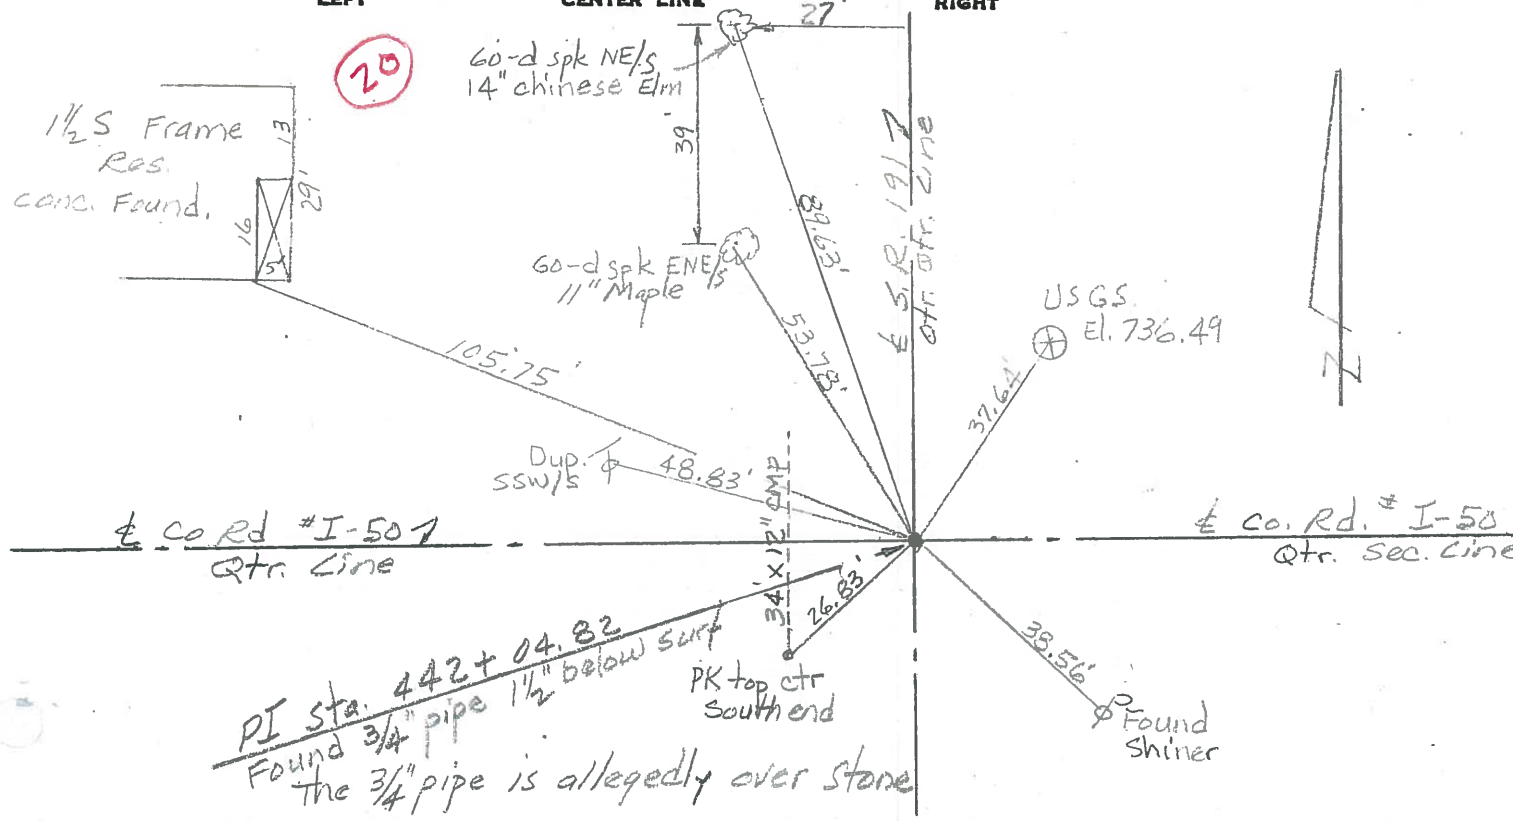 LEFT
CENTER LINE
RIGHT
20
27'
60-d spk NE/s
14" chinese Elm
39'
1½ S Frame
Res.
conc. Found.
13
29'
16
5'
60-d spk ENE/s
11" Maple
89.63'
53.78'
℄ S.R. 191 7
Qtr. Qtr. Line
USGS
El. 736.49
37.64'
Z
105.75'
Dup.
SSW/s
48.83'
34' x 12" CMP
℄ Co Rd #I-50 7
Qtr. Line
℄ Co. Rd. # I-50
Qtr. Sec. Line
26.83'
38.56'
PI Sta. 442+04.82
Found 3/4" pipe 1½" below surf
The 3/4" pipe is allegedly over stone
PK top ctr
South end
Found
Shiner